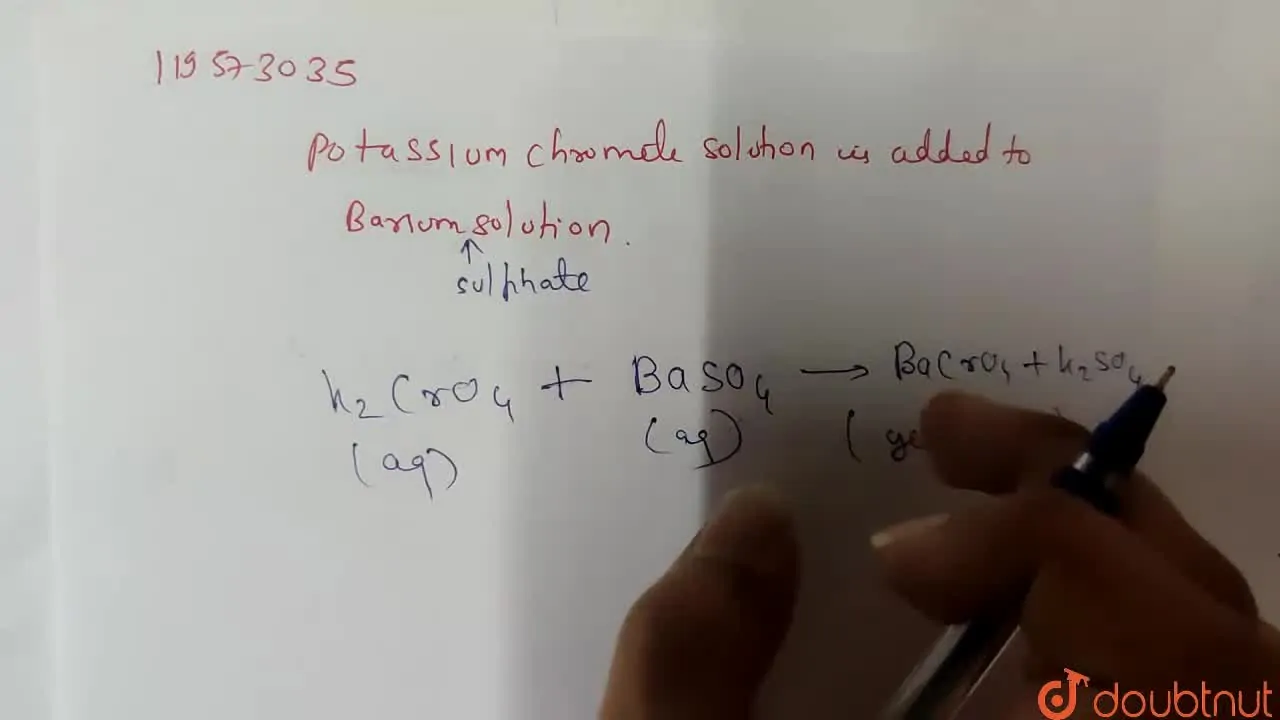 119573035
Potassium chromate solution is added to
Barium solution.
↑
sulphate
K2CrO4 + BaSO4 → BaCrO4 + K2SO4
(aq) (aq) (ye
doubtnut